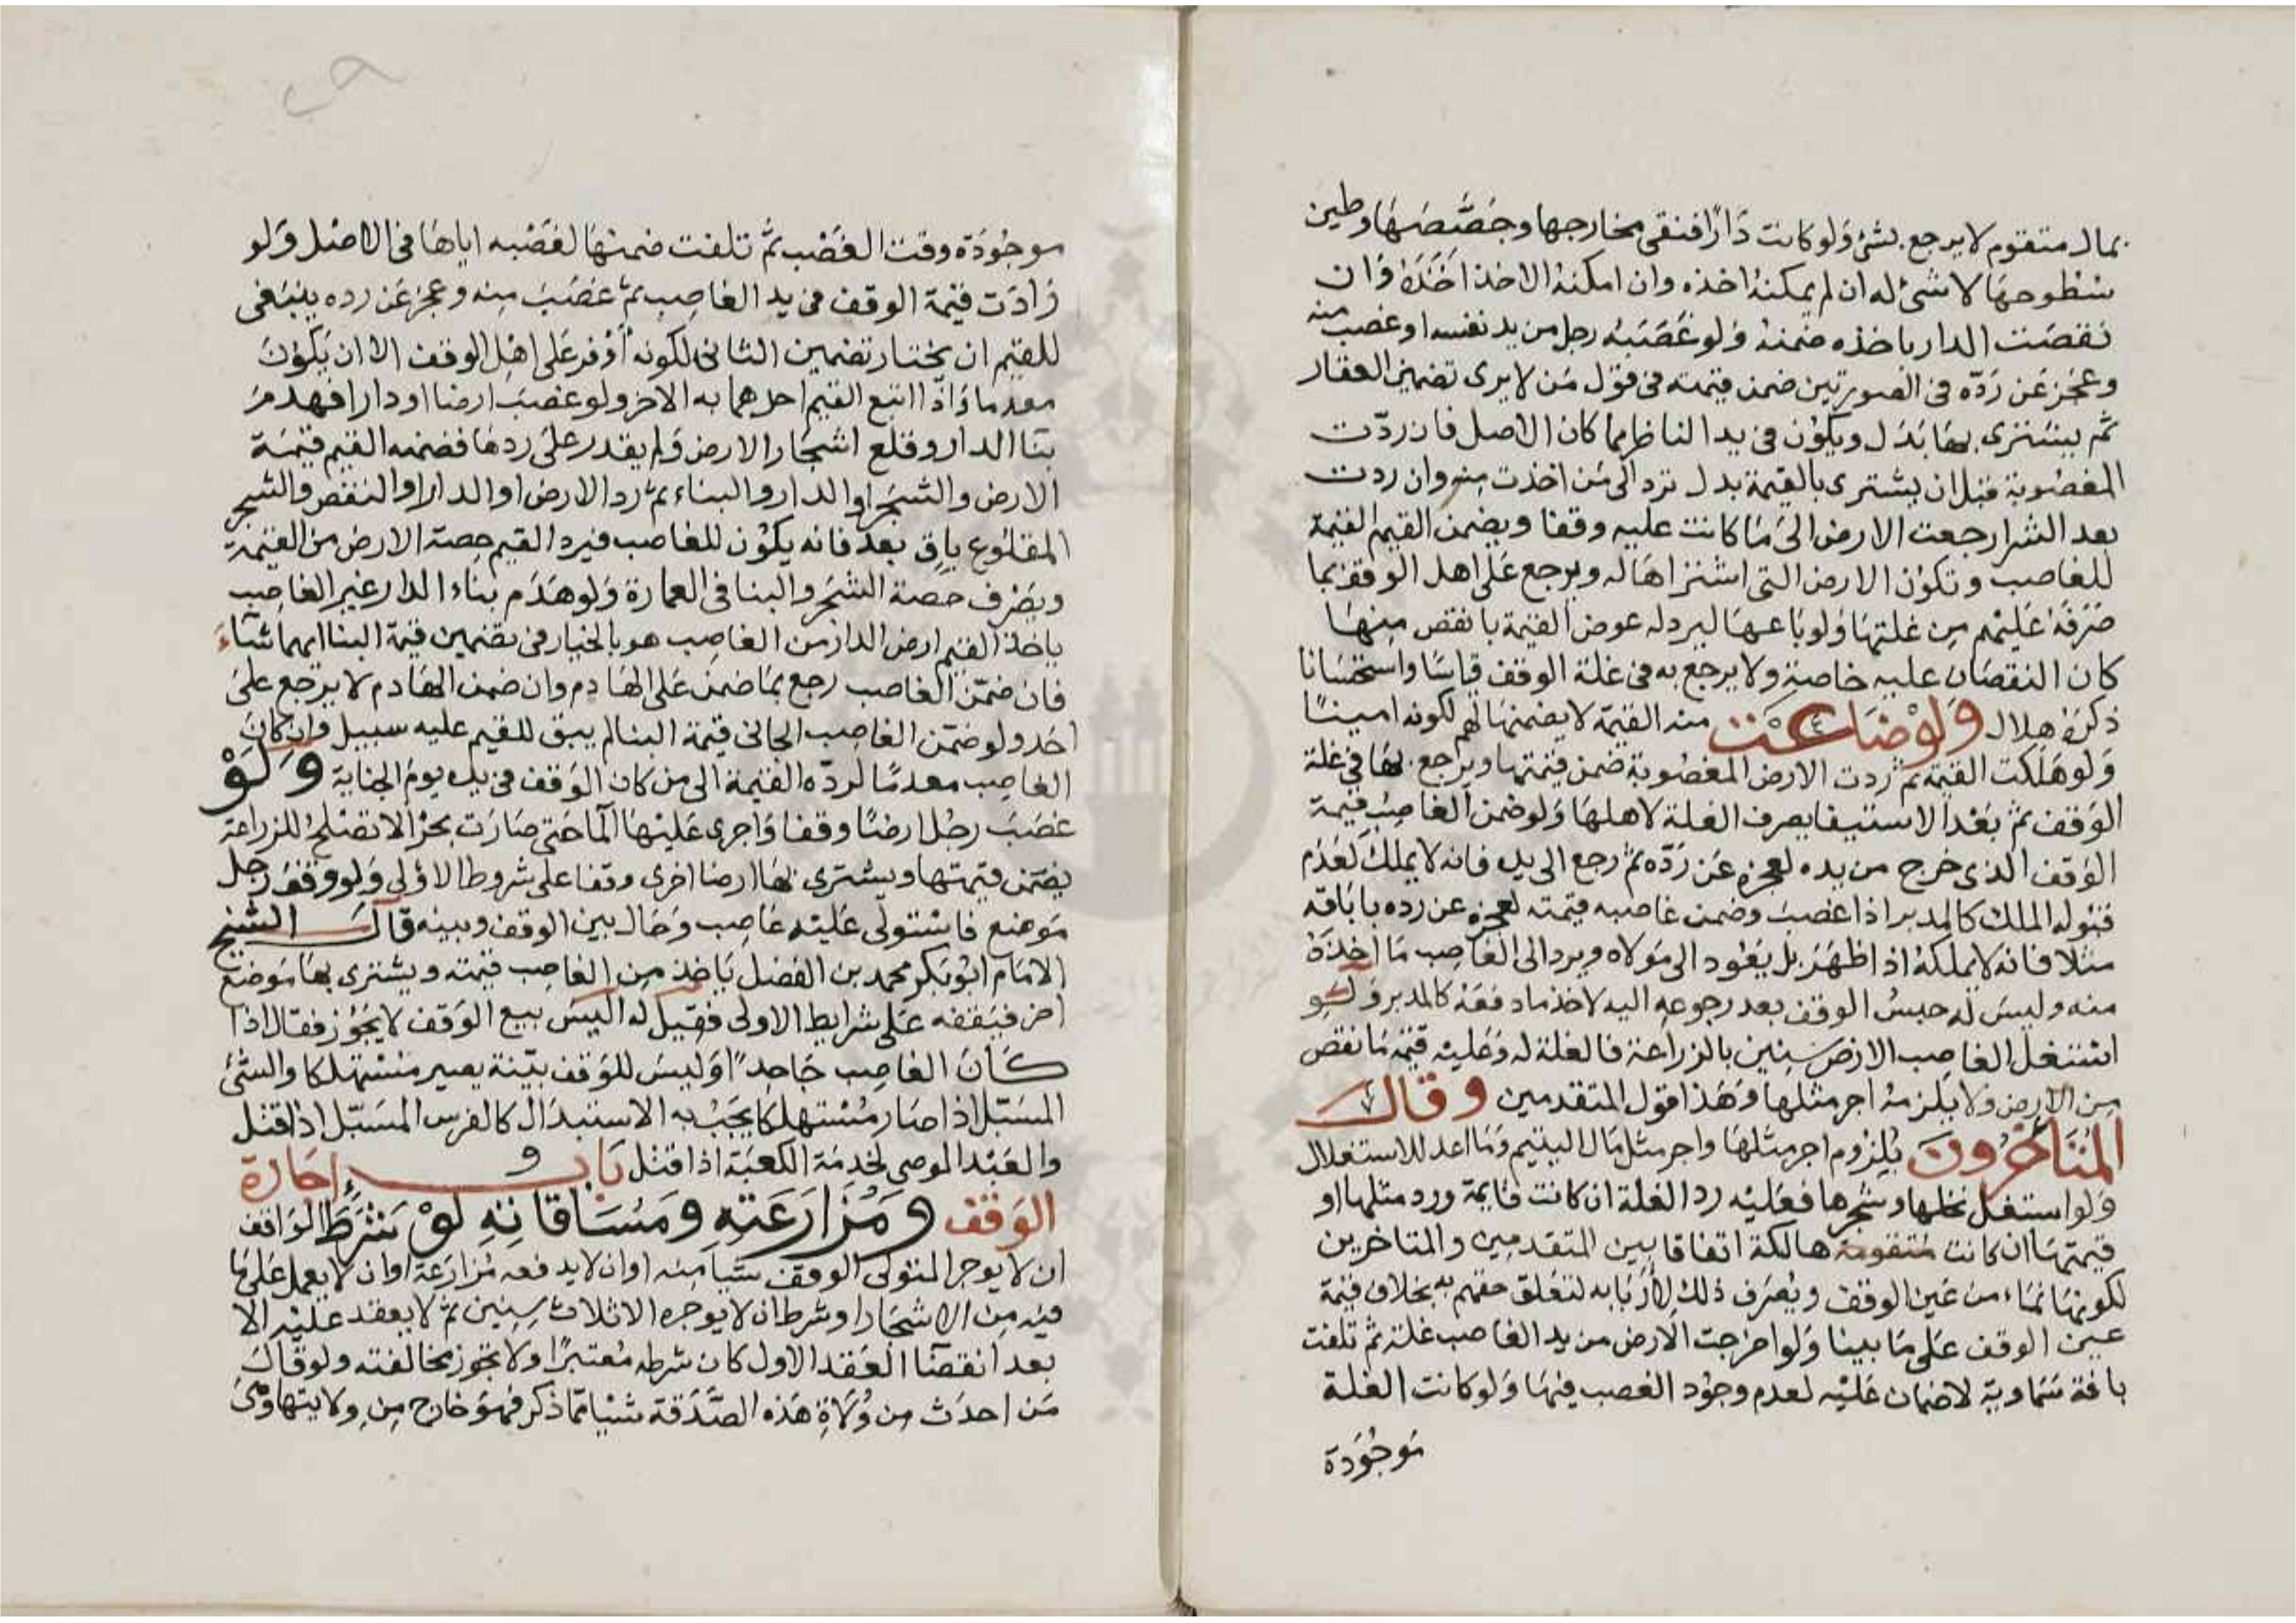 بمال متقوم لا يرجع بشئ ولو كانت دارا فنقى مخارجها وجصصها وطين
سطوحها لا شئ له ان لم يمكنه اخذه وان امكنه الاخذ اخذه وان
نقصت الدار باخذه ضمنه ولو غصبه رجل من يد نفسه او غصب منه
وعجز عن رده في الصورتين ضمن قيمته في قول من لا يرى تضمين العقار
ثم يشترى بها بدل ويكون في يد الناظر مما كان الاصل فان ردت
المغصوبة قبل ان يشترى بالقيمة بدل ترد الى من اخذت منه وان ردت
بعد الشرا رجعت الارض الى ما كانت عليه وقفا ويضمن القيم القيمة
للغاصب وتكون الارض التي اشتراها له ويرجع على اهل الوقف بما
صرفه عليهم من غلتها ولو باعها ليرد له عوض القيمة بانقص منها
كان النقصان عليه خاصة ولا يرجع به في غلة الوقف قياسا واستحسانا
ذكره هلال ولو ضاعت منه القيمة لا يضمنها لهم لكونه امينا
ولو هلكت القيمة ثم ردت الارض المغصوبة ضمن قيمتها ويرجع بها في غلة
الوقف ثم بعد الاستيفا يصرف الغلة لاهلها ولو ضمن الغاصب قيمة
الوقف الذى خرج من يده لعجزه عن رده ثم رجع الى يده فانه لا يملك لعدم
قبوله الملك كالمدبر اذا غصب وضمن غاصبه قيمته لعجزه عن رده باباقه
مثلا فانه لا يملكه اذا ظهر بل يعود الى مولاه ويرد الى الغاصب ما اخذه
منه وليس له حبس الوقف بعد رجوعه اليه لاخذ ما دفعه كالمدبر ولو
استغل الغاصب الارض سنين بالزراعة فالغلة له وعليه قيمة ما نقص
من الارض ولا يلزمه اجر مثلها وهذا قول المتقدمين وقال
المتاخرون يلزوم اجر مثلها واجر مثل مال اليتيم وما اعد للاستغلال
ولو استغل نخلها وشجرها فعليه رد الغلة ان كانت قايمة ورد مثلها او
قيمتها ان كانت متقومة هالكة اتفاقا بين المتقدمين والمتاخرين
لكونها نماء من عين الوقف ويصرف ذلك لاربابه لتعلق حقهم به بخلاف قيمة
عين الوقف على ما بينا ولو اخرجت الارض من يد الغاصب غلة ثم تلفت
بافة سماوية لا ضمان عليه لعدم وجود الغصب فيها ولو كانت الغلة
موجودة
موجودة وقت الغصب ثم تلفت ضمنها لغصبه اياها في الاصل ولو
زادت قيمة الوقف في يد الغاصب ثم غصب منه وعجز عن رده ينبغى
للقيم ان يختار تضمين الثاني لكونه أوفر على اهل الوقف الا ان يكون
معدما واذا اتبع القيم احدهما به الاخر ولو غصب ارضا او دارا فهدم
بنا الدار وقلع اشجار الارض ولم يقدر على ردها فضمنه القيم قيمة
الارض والشجر او الدار والبناء ثم رد الارض او الدار او النقض والشجر
المقلوع باق بعد فانه يكون للغاصب فيرد القيم حصة الارض من القيمة
ويصرف حصة الشجر والبنا في العمارة ولو هدم بناء الدار غير الغاصب
ياخذ القيم ارض الدار من الغاصب هو بالخيار في تضمين قيمة البنا ايهما شاء
فان ضمن الغاصب رجع بما ضمن على الهادم وان ضمن الهادم لا يرجع على
احد ولو ضمن الغاصب الجاني قيمة البنا لم يبق للقيم عليه سبيل وان كان
الغاصب معدما لرده القيمة الى من كان الوقف في يده يوم الجناية ولو
غصب رجل ارضا وقفا واجرى عليها الما حتى صارت بحرا لا تصلح للزراعة
يضمن قيمتها ويشترى بها ارضا اخرى وقفا على شروط الاولى ولو وقف رجل
موضع فاستولى عليه غاصب وحال بين الوقف وبينه قال الشيخ
الامام ابو بكر محمد بن الفضل ياخذ من الغاصب قيمته ويشترى بها موضع
اخر فيقفه على شرايط الاولى فقيل له اليس بيع الوقف لا يجوز فقال اذا
كان الغاصب جاحدا وليس للوقف بينة يصير مستهلكا والشئ
المسبل اذا صار مستهلكا يجب به الاستبدال كالفرس المسبل اذا قتل
والعبد الموصى لخدمة الكعبة اذا قتل باب و اجارة
الوقف ومزارعته ومساقاته لو شرط الواقف
ان لا يوجر المتولى الوقف شيا منه او ان لا يدفعه مزارعة او ان لا يعمل على ما
فيه من الاشجار او شرط ان لا يوجره الا ثلاث سنين ثم لا يعقد عليه الا
بعد انقضا العقد الاول كان شرطه معتبرا ولا تجوز مخالفته ولو قال
من احدث من ولاة هذه الصدقة شيا مما ذكر فهو خارج من ولايتها وهى